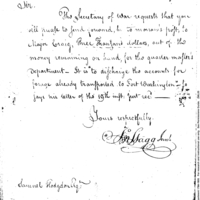 Mr.
The Secretary of War requests that you
will cause to send forward, by to morrow's post, to
Major Craig, Three Thousand dollars, out of the
money remaining on hand, for the quarter master's
department — It is to discharge the accounts for
forage already transported to Fort Washington
as per his letter of the 19th inst.
Yours respectfully
Jno Stagg
Samuel Hodgdon Esq